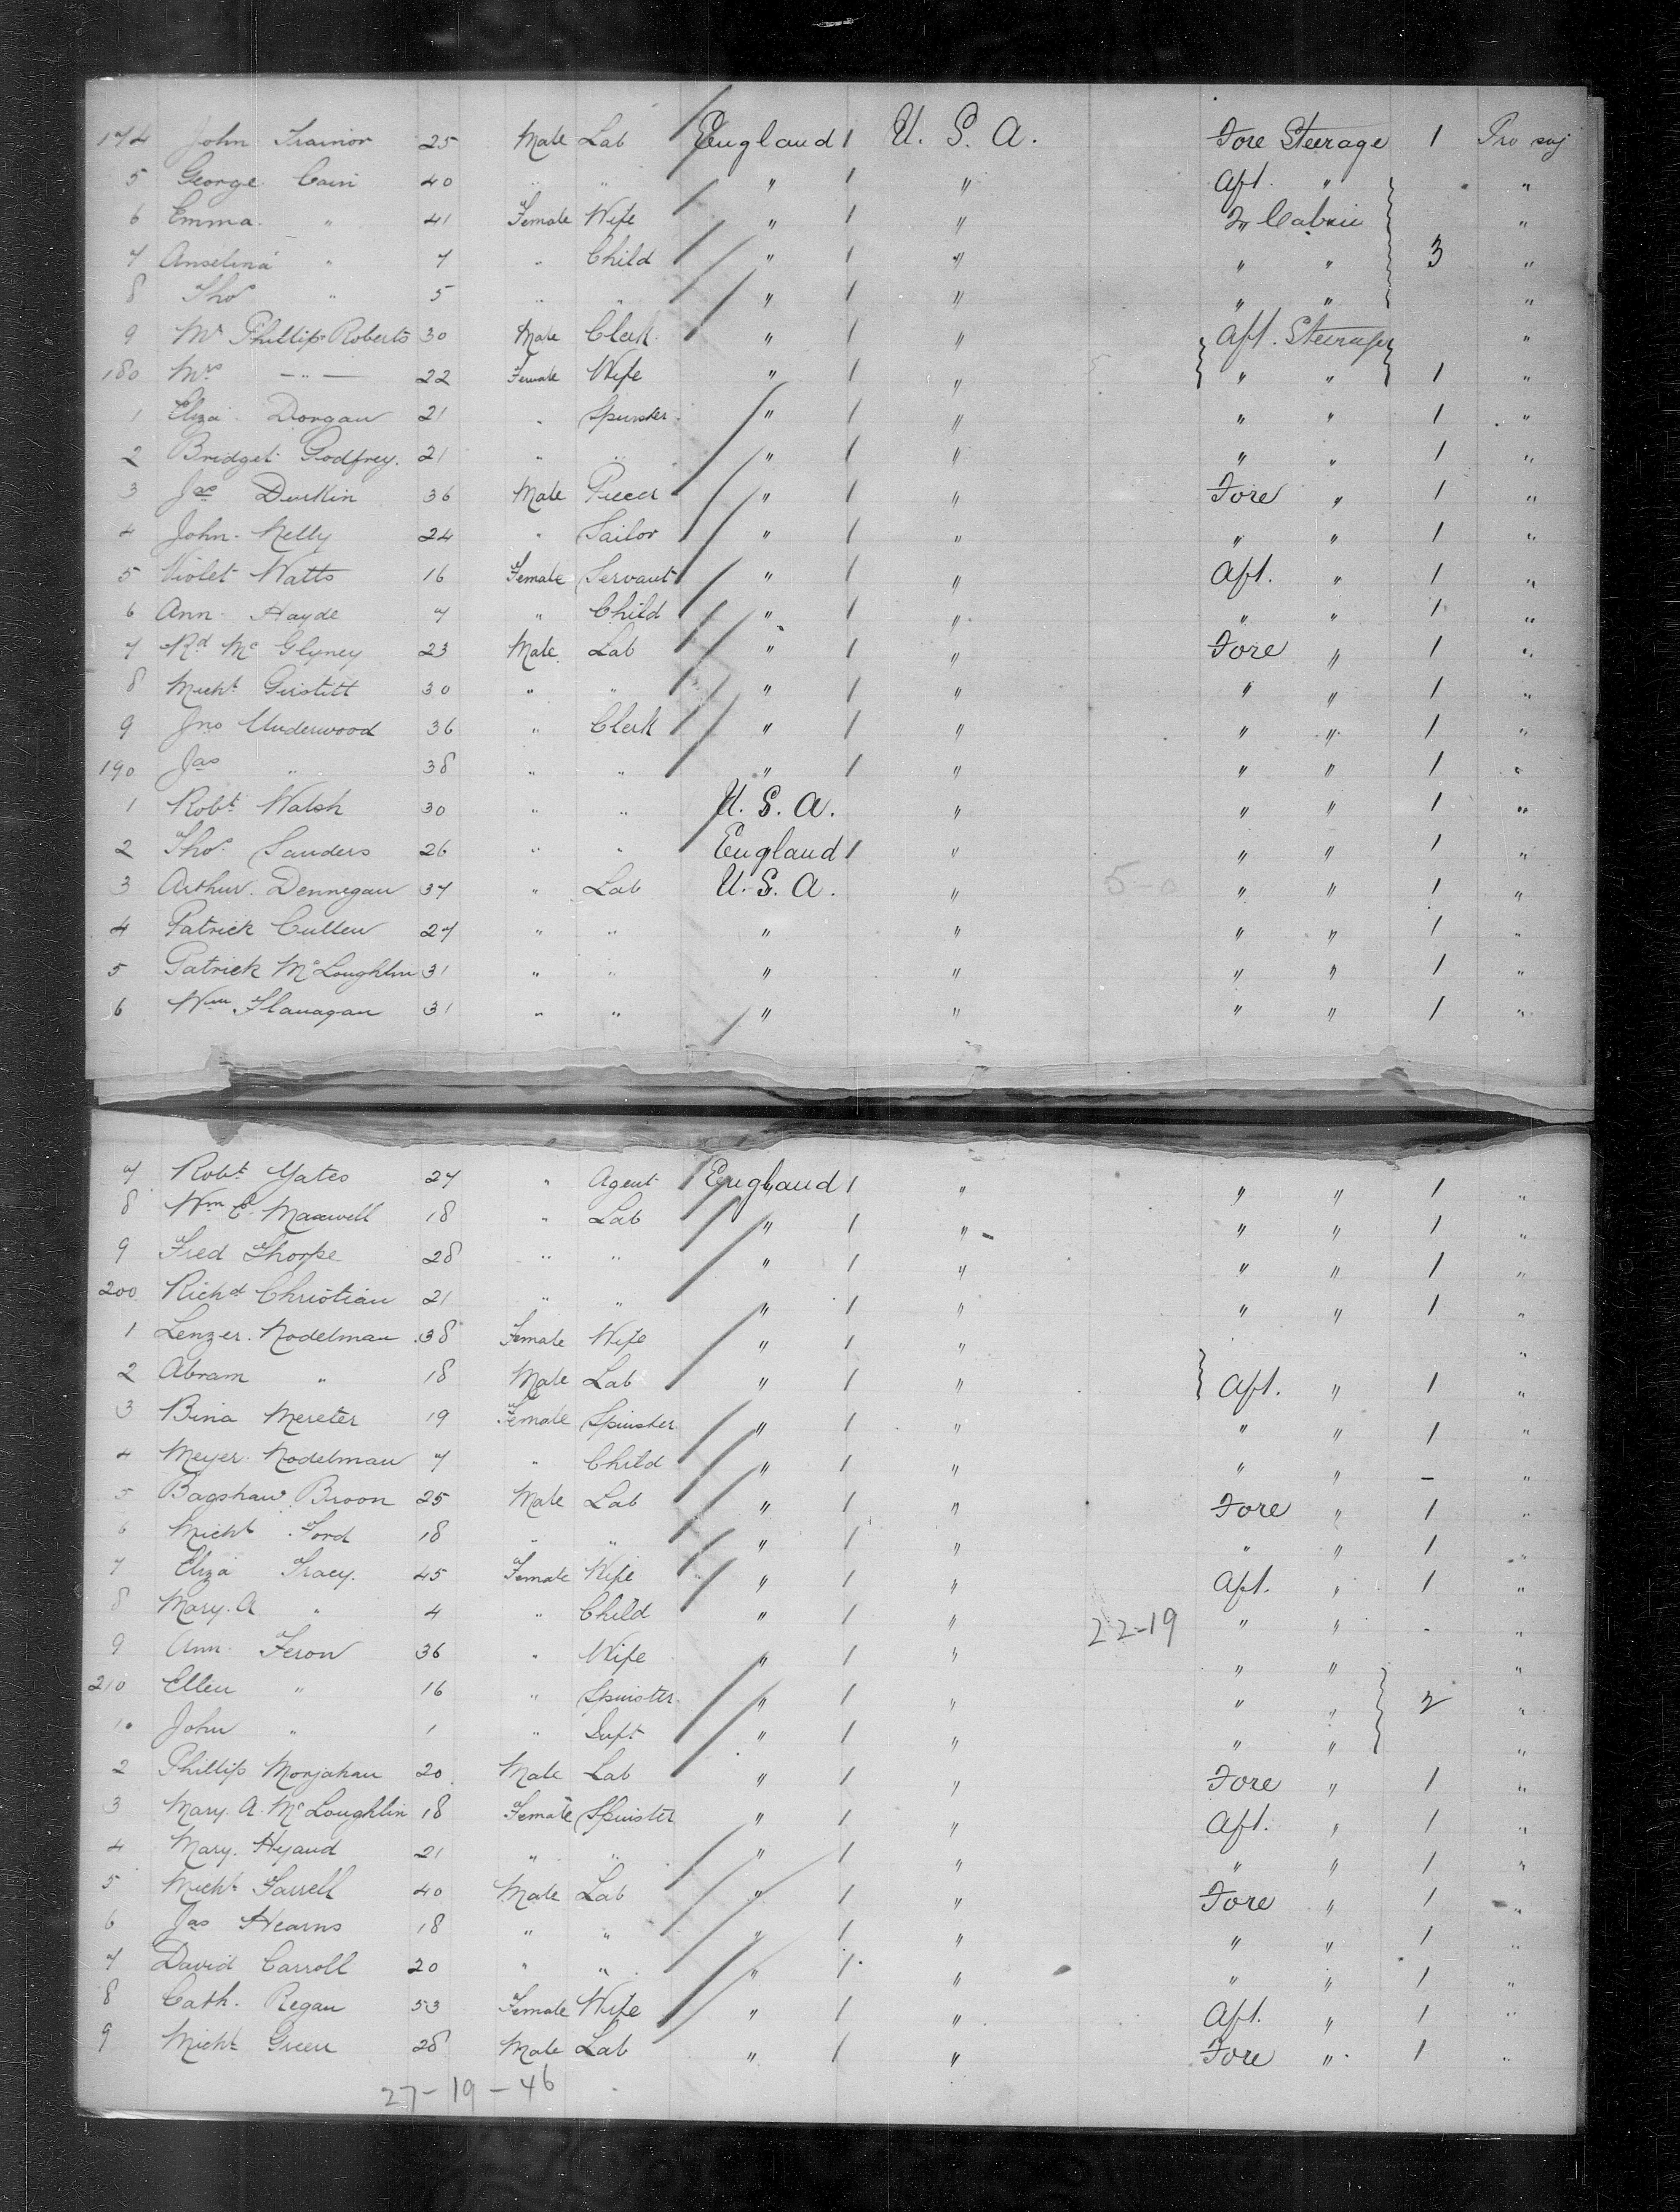 174 John Trainor 25 Male Lab England 1 U. S. A. Fore Steerage 1 Pro suj
5 George Cain 40 " " " 1 " Aft. " "
6 Emma " 41 Female Wife " 1 " In Cabin "
7 Anselina " 7 " Child " 1 " " " 3 "
8 Thos " 5 " " " 1 " " " "
9 Mr Phillip Roberts 30 Male Clerk " 1 " Aft. Steerage "
180 Mrs — " — 22 Female Wife " 1 " " " 1 "
1 Eliza Dorgan 21 " Spinster " 1 " " " 1 "
2 Bridget Godfrey. 21 " " " 1 " " " 1 "
3 Jas Durkin 36 Male " 1 " Fore " 1 "
4 John Kelly 24 " Sailor " 1 " " " 1 "
5 Violet Watts 16 Female Servant " 1 " Aft. " 1 "
6 Ann Hayde 7 " Child " 1 " " " 1 "
7 Rd Mc Glyney 23 Male Lab " 1 " Fore " 1 "
8 Micht 30 " " " 1 " " " 1 "
9 Jno Underwood 36 " Clerk " 1 " " " 1 "
190 Jas " 38 " " " 1 " " " 1 "
1 Robt Walsh 30 " " U. S. A. " " " 1 "
2 Thos Sanders 26 " " England 1 " " " 1 "
3 Arthur Dennegan 37 " Lab U. S. A. " 5-0 " " 1 "
4 Patrick Cullen 27 " " " " " " 1 "
5 Patrick McLoughlin 31 " " " " " " 1 "
6 Wm Flanagan 31 " " " " " " 1 "
7 Robt Yates 27 " Agent England 1 " " " 1 "
8 Wm C. Maxwell 18 " Lab " 1 " " " 1 "
9 Fred Thorpe 28 " " " 1 " " " 1 "
200 Richd Christian 21 " " " 1 " " " 1 "
1 Lenzer Nodelman 38 Female Wife " 1 " "
2 Abram " 18 Male Lab " 1 " Aft. " 1 "
3 Bina Mereter 19 Female Spinster " 1 " " " 1 "
4 Meyer Nodelman 7 " Child " 1 " " " – "
5 Bagshaw Broon 25 Male Lab " 1 " Fore " 1 "
6 Micht Ford 18 " " " 1 " " " 1 "
7 Eliza Tracy. 45 Female Wife " 1 " Aft. " 1 "
8 Mary. A " 4 " Child " 1 " 22-19 " " - "
9 Ann Feron 36 " Wife " 1 " " " "
210 Ellen " 16 " Spinster " 1 " " " 2 "
1 John " 1 " Inft " 1 " " " "
2 Phillip Monjahan 20 Male Lab " 1 " Fore " 1 "
3 Mary. A. McLoughlin 18 Female Spinster " 1 " Aft. " 1 "
4 Mary. Hyand 21 " " " 1 " " " 1 "
5 Micht Farrell 40 Male Lab " 1 " Fore " 1 "
6 Jas Hearns 18 " " " 1 " " " 1 "
7 David Carroll 20 " " " 1 " " " 1 "
8 Cath. Regan 53 Female Wife " 1 " Aft. " 1 "
9 Micht Green 28 Male Lab " 1 " Fore " 1 "
27-19-46